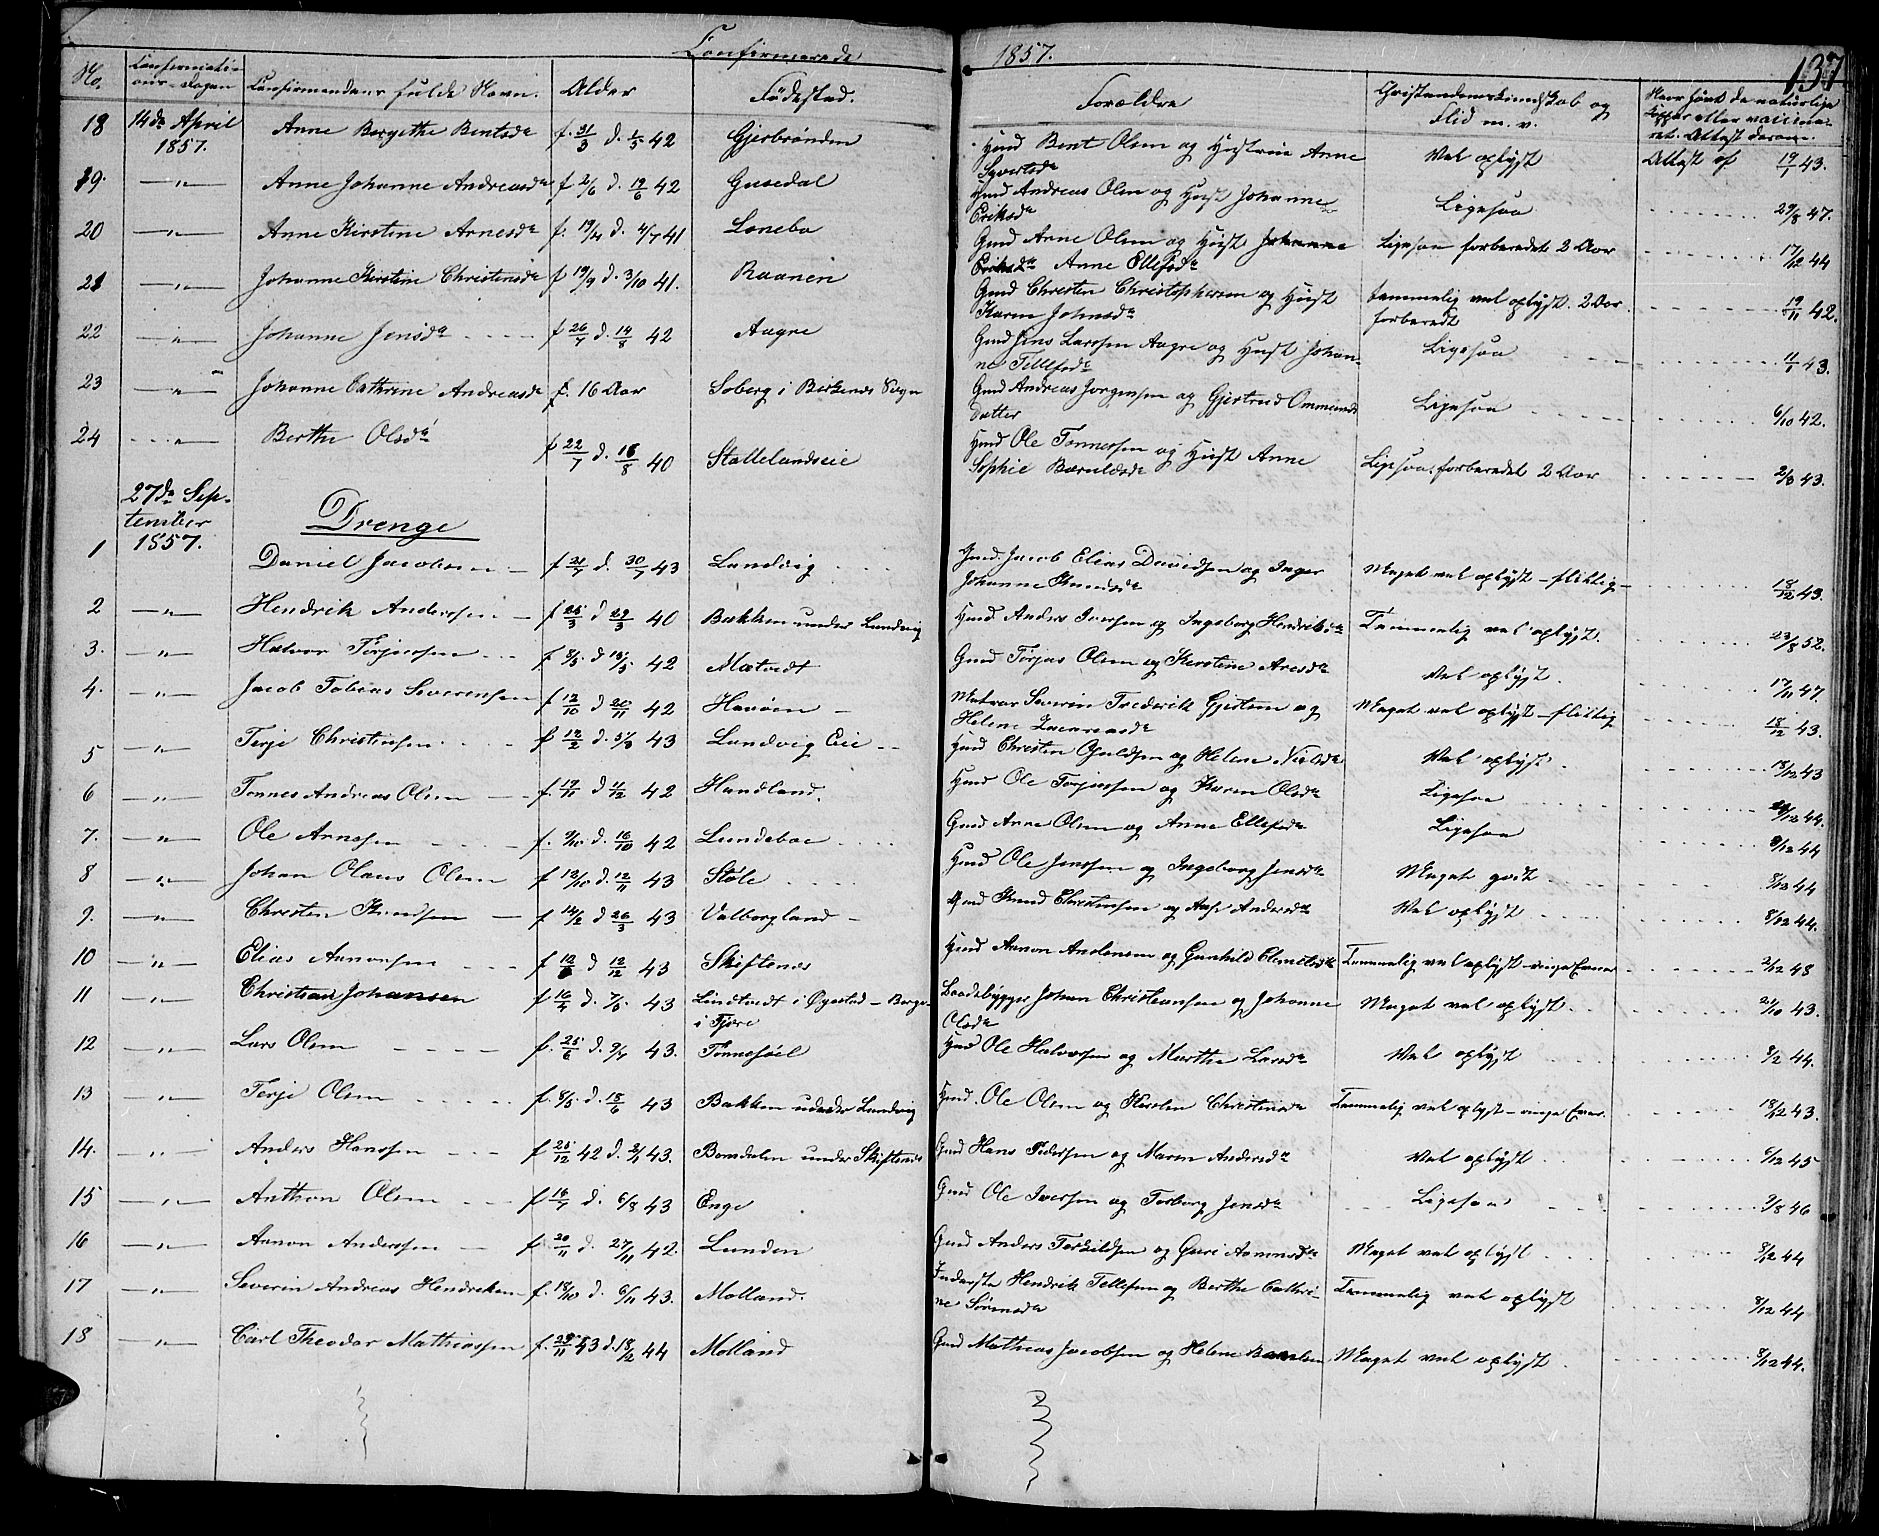 Confirmerede 1857. 137
No. Confirmati-ons-Dagen Confirmandens fulde Navn. Alder Fødested. Forældre Christendomskundskab og Flid m. v. Naar havt de naturlige Kopper eller vaccineret. Attest derom.
18 14de April 1857. Anne Borgethe Bentsdr f. 31/3 d. 1/5 42 Gjerbrønden Gmd Bent Olsen og Hustrue Anne Syvertsdr Vel oplyst Attest af 19/7 43.
19. —"— Anne Johanne Andreasdr f 2/6 d. 19/6 42 Gusedal Gmd Andreas Olsen og Hust Johanne Eriksdr Ligesaa 29/8 47.
20 —"— Anne Kirstine Arnesdr f. 19/4 d. 4/7 41 Lonebo Gmd Arne Olsen og Hust Johanne Eriksdr Anne Ellefsdr Ligesaa forberedet 2 Aar 17/12 44
21 —"— Johanne Kirstine Christensdr f 19/9 d. 3/10 41. Raanen Gmd Christen Christophersen og Hust Karen Johnsdr temmelig vel oplyst. 2 Aar forberedt 19/11 42.
22 —"— Johanne Jensdr f 26/7 d. 14/8 42 Aagre Gmd Jens Larssen Aagre og Hust Johanne Tellefsdr Ligesaa 11/1 43.
23 —"— Johanne Cathrine Andreasdr f. 16 Aar Soberg i Birkenes Sogn Gmd Andreas Jorgensen og Gjertrud Ommunds Datter Ligesaa 6/10 42.
24 —"— Berthe Olsdr f 22/7 d. 16/8 40 Støllelandseie Hmd Ole Tønnessen og Hust Anne Sophie Bærulsdr Ligesaa. forberedet 2 Aar 2/8 43.
27de September 1857.
Drenge
1 Daniel Jacobsen f 21/7 d. 30/7 43 Landvig Gmd. Jacob Elias Davidsen og Inger Johanne Knudsdr Meget vel oplyst – flittig – 18/12 43.
2 —"— Hendrik Anderssen f 25/3 d 29/3 40 Bakken under Landvig Hmd Anders Iversen og Ingeborg Hendriksdr Temmelig vel oplyst. 23/8 52.
3. —"— Halvor Torjussen f 8/5 d 15/5 42 Mætvedt Gmd Torjus Olsen og Kirstine Aresdr Vel oplyst. 17/11 47.
4. —"— Jacob Tobias Severensen f 12/10 d 20/11 42 Havoen Matros Severin Frederik Gjertsen og Helene Laurensdr Meget vel oplyst – flittig 18/12 43.
5 —"— Terje Christensen f 12/2 d. 5/3 43 Landvig Eie Hmd Christen Gjuldsen og Helene Nielsdr Vel oplyst. 18/12 43
6 —"— Tønnes Andreas Olsen f. 19/11 d 1/12 42 Hundland. Hmd Ole Torjussen og Karen Olsdr Ligesaa 44.
7. —"— Ole Arnesen f. 9/10 d. 16/10 42 Lundeboe Gmd Arne Olsen og Anne Ellefsdr Ligesaa 8/12 44
8 —"— Johan Olaus Olsen f 12/10 d. 12/11 43 Støle Hmd Ole Jenssen og Ingeborg Jensdr Meget godt 8/12 44
9. —"— Christen Knudsen f 14/2 d 26/3 43 Valborgland Gmd Knud Christensen og Aase Andersdr Vel oplyst 8/12 44.
10 —"— Elias Aanonsen f 12/ d 12/12 43 Skiftenes Hmd Aanon Andersen og Gunhild Clemetsdr Temmelig vel oplyst – ringe Evner 2/12 48
11 —"— Christian Johansen f 16/4 d. 7/5 43 Lindtvedt i Øyestad – Borge i Fjære Baadebygger Johan Christiansen og Johanne Olsdr Meget vel oplyst. 21/10 43.
12 —"— Lars Olsen f. 25/6 d. 9/7 43. Tønnesøl Hmd Ole Halvorsen og Marthe Larsdr Vel oplyst 8/2 44.
13 —"— Terje Olsen f. 8/5 d. 18/6 43 Bakken under Landvig Hmd. Ole Olsen og Kirsten Christensdr Temmelig vel oplyst – ringe Evner. 18/12 43.
14. —"— Anders Hanssen f 25/12 42 d. 2/1 43. Bomdalen under Skiftenes Gmd Hans Pederssen og Maren Andersdr Vel oplyst 6/12 45
15 —"— Anthon Olsen f 14/7 d. 6/8 43 Enge Gmd Ole Iversen og Torborg Jensdr Ligesaa 9/8 46
16 —"— Aanon Anderssen f. 20/11 d. 27/11 42. Lunden Gmd Anders Terkildsen og Guri Aanonsdr Meget vel oplyst 8/12 44
17 —"— Severin Andreas Hendreksen f. 18/10 d. 6/11 43. Molland. Inderste Hendrik Tellefsen og Berthe Cathrine Sørensdr Temmelig vel oplyst 8/12 44
18 —"— Carl Theodor Mathiassen f. 29/11 43 d. 18/2 44 Molland Gmd Mathias Jacobsen og Helene Meget vel oplyst. 8/12 44.